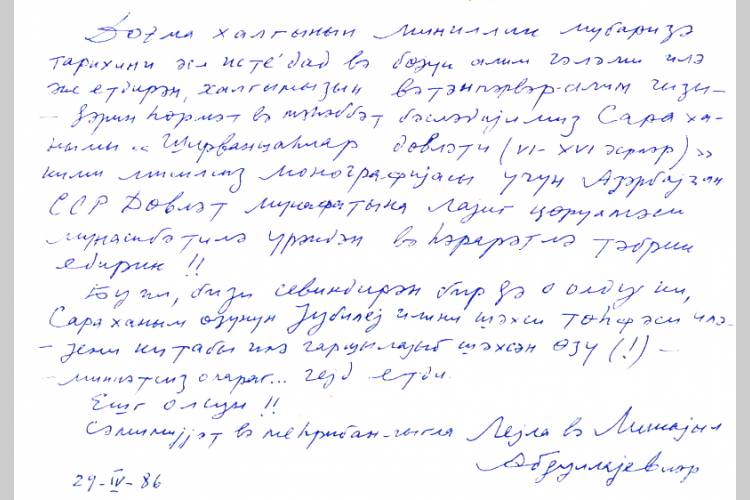 Доғма халгынын миниллик мубаризә
тарихини әкс истеʼдад вә бөјүк алим гәләми илә
әкс етдирән, халгымызын вәтәнпәрвәр-алим гызы –
һөрмәт вә мәһәббәт бәсләдијимиз Сара ха-
нымы "Ширваншаһлар дөвләти (VI-XVI әсрләр)"
кими мисилсиз монографијасы үчүн Азәрбајҹан
ССР Дөвләт мүкафатына лајиг ҝөрүлмәси
мүнасибәтилә үрәкдән вә һәрарәтлә тәбрик
едирик !!
Бу ил, бизи севиндирән бир дә о олду ки,
Сара ханым өзүнүн јубилеј илини шәхси төһфәси илә –
– јени китабы илә гаршылајыб шәхсән өзү (!) –
– миннәтсиз олараг... гејд етди.
Ешг олсун !!
Сәмимијјәт вә меһрибан-лыгла Лејла вә Микајыл
Абдуллајевләр
29-IV-86